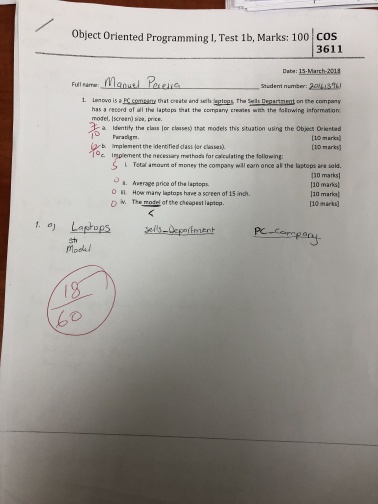 Object Oriented Programming I, Test 1b, Marks: 100 COS
3611
Date: 15-March-2018
Full name: Manuel Pereira Student number:
1. Lenovo is a PC company that create and sells laptops. The Sells Department on the company
has a record of all the laptops that the company creates with the following information:
model, (screen) size, price.
7/10 a. Identify the class (or classes) that models this situation using the Object Oriented
Paradigm. [10 marks]
6/10 b. Implement the identified class (or classes). [10 marks]
c. Implement the necessary methods for calculating the following:
5 i. Total amount of money the company will earn once all the laptops are sold.
[10 marks]
0 ii. Average price of the laptops. [10 marks]
0 iii. How many laptops have a screen of 15 inch. [10 marks]
0 iv. The model of the cheapest laptop. [10 marks]
1. a) Laptops Sells_Department PC_Company
Model
18
60